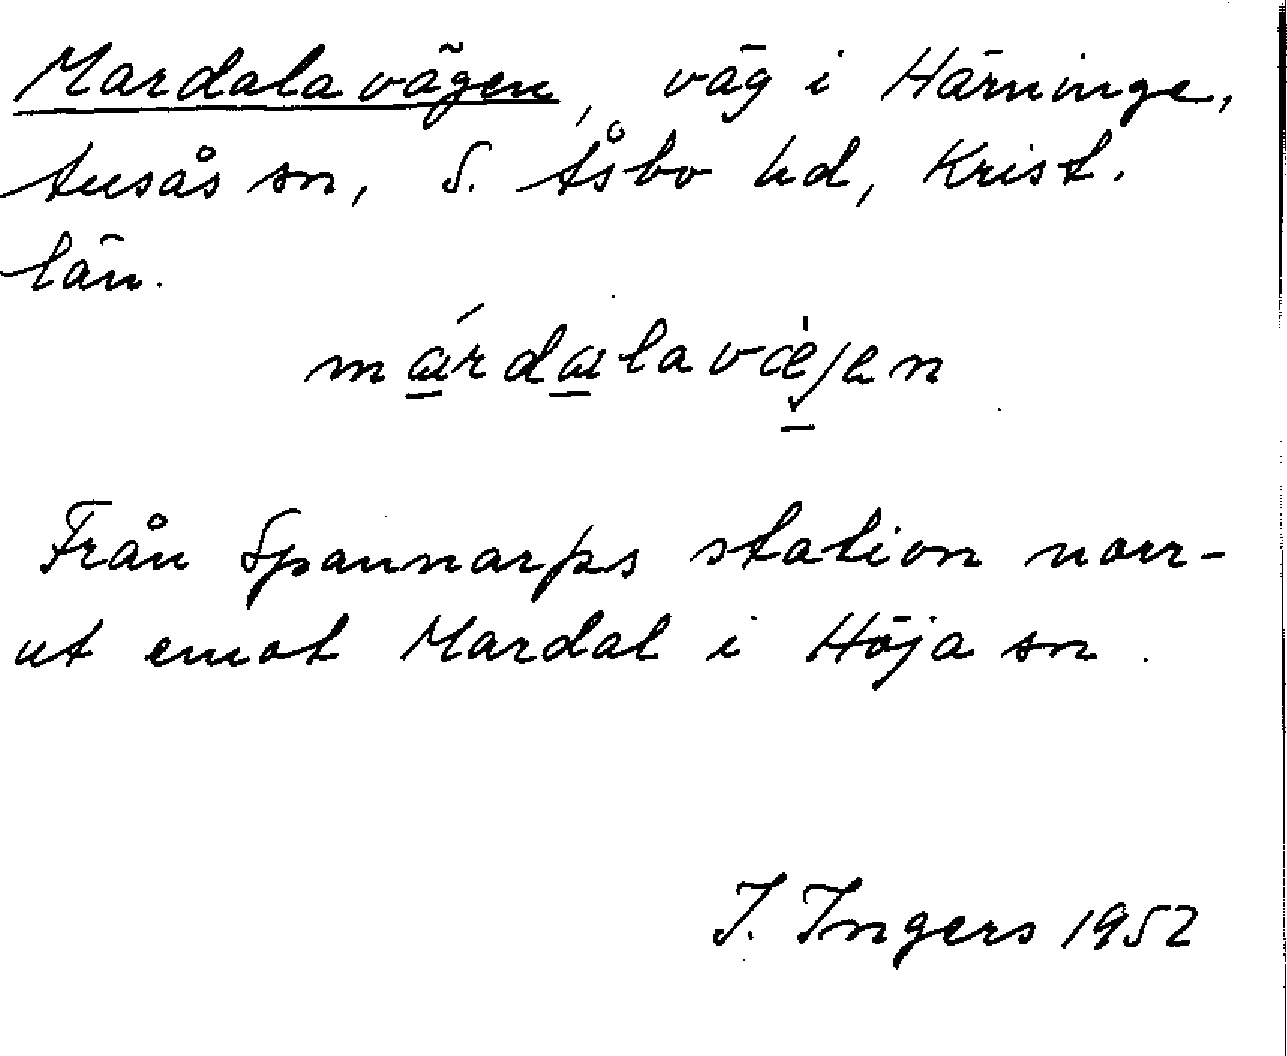 Mardalavägen, väg i Härninge,
tusås sn, S. Åsbo hd, Krist.
län.
márdalavæ̀jen
Från Spannarps station norr-
ut emot Mardal i Höja sn.
I. Ingers 1952